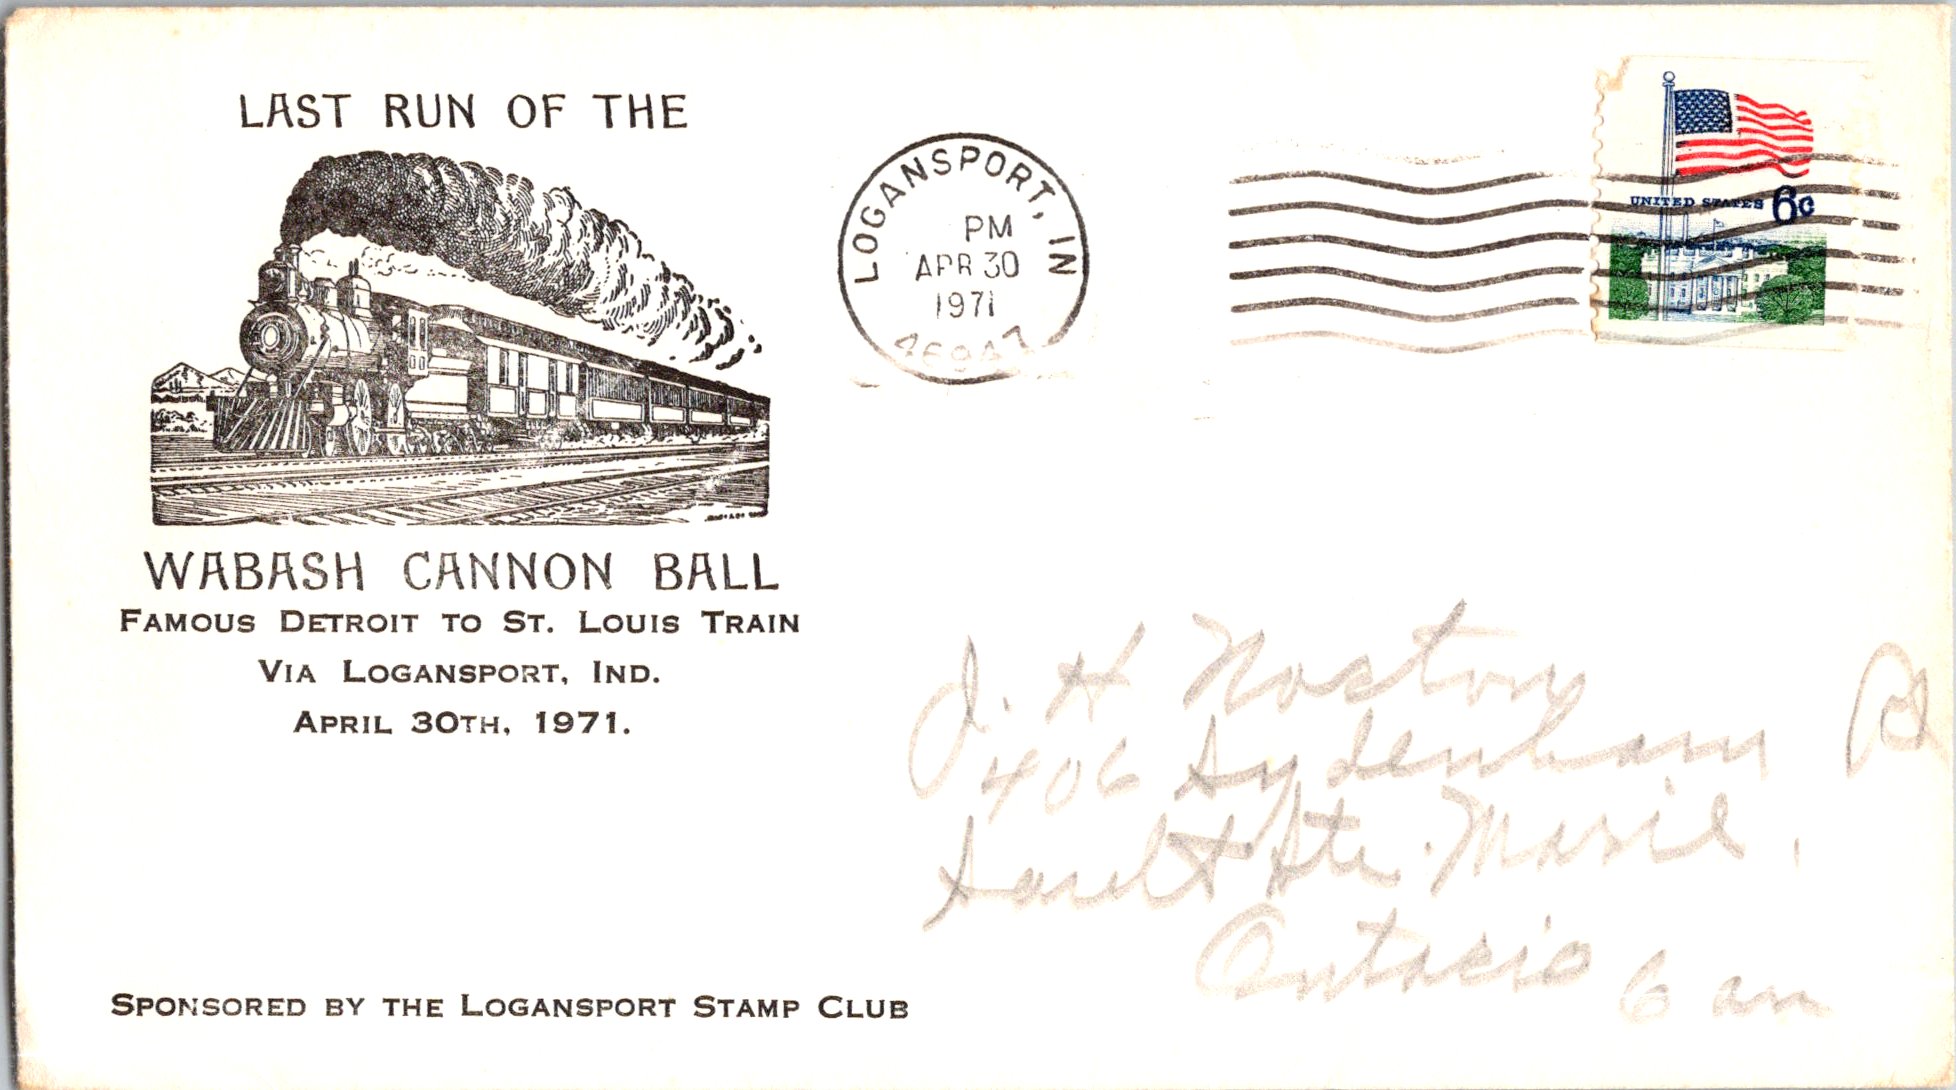 LAST RUN OF THE
WABASH CANNON BALL
FAMOUS DETROIT TO ST. LOUIS TRAIN
VIA LOGANSPORT, IND.
APRIL 30TH, 1971.
SPONSORED BY THE LOGANSPORT STAMP CLUB
LOGANSPORT, IN
PM
APR 30
1971
46947
UNITED STATES 6c
J. H Norton
406 Sydenham Rd
Sault Ste. Marie,
Ontario Can